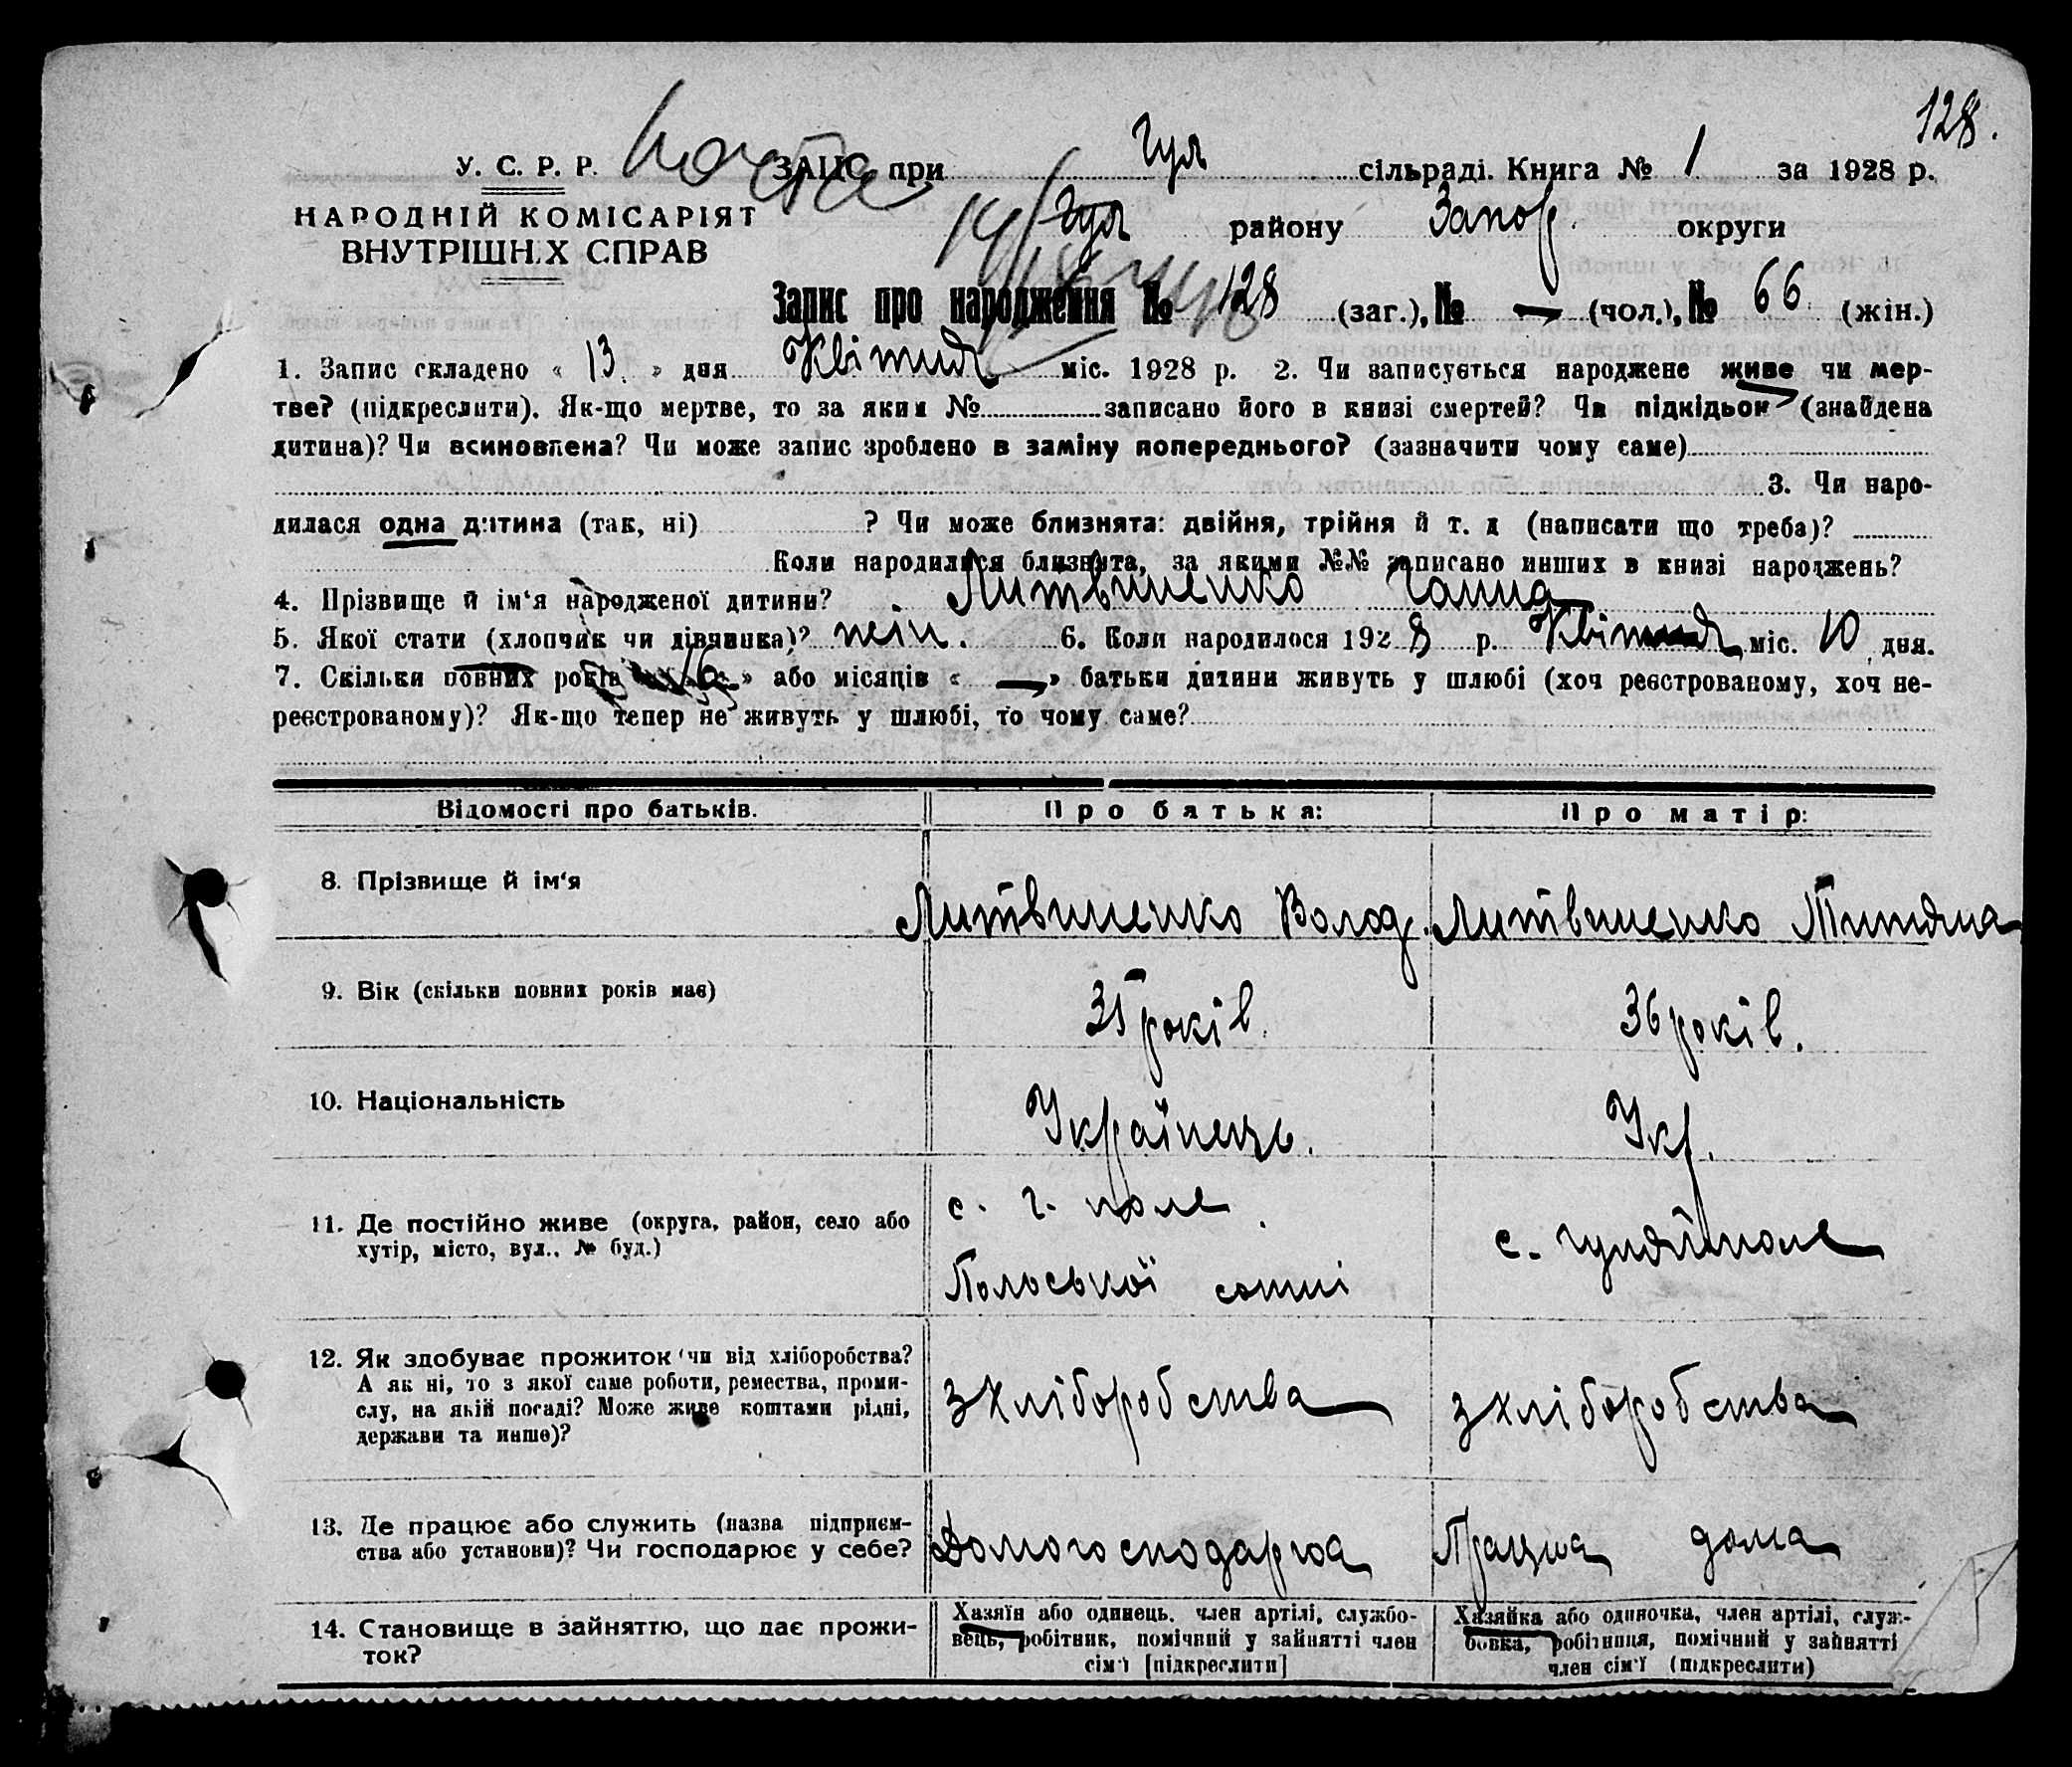 128.
У. С. Р. Р. ЗАЦС при Гул сільраді. Книга № 1 за 1928 р.
НАРОДНІЙ КОМІСАРІЯТ
ВНУТРІШНІХ СПРАВ
Гул району Запор. округи
Запис про народження № 128 (заг.), № — (чол.), № 66 (жін.)
1. Запис складено « 13 » дня Квітня міс. 1928 р. 2. Чи записується народжене живе чи мер-
тве? (підкреслити). Як-що мертве, то за яким № записано його в книзі смертей? Чи підкідьок (знайдена
дитина)? Чи всиновлена? Чи може запис зроблено в заміну попереднього? (зазначити чому саме)
3. Чи наро-
дилася одна дитина (так, ні) ? Чи може близнята: двійня, трійня й т. д (написати що треба)?
Коли народилися близнята, за якими №№ записано инших в книзі народжень?
4. Прізвище й ім'я народженої дитини? Литвиненко Ганна
5. Якої стати (хлопчик чи дівчинка)? 6. Коли народилося 1928 р. Квітня міс. 10 дня.
7. Скільки повних років « 16 » або місяців « — » батьки дитини живуть у шлюбі (хоч реєстрованому, хоч не-
реєстрованому)? Як-що тепер не живуть у шлюбі, то чому саме?
Відомості про батьків. Про батька: Про матір:
8. Прізвище й ім'я Литвиненко Волод. Литвиненко Титяна
9. Вік (скільки повних років має) 35 років. 36 років.
10. Національність Українець. Укр.
11. Де постійно живе (округа, район, село або
хутір, місто, вул.. № буд.)
с. Г. поле
Польської сотні
с. Гуляйполе
12. Як здобуває прожиток чи від хліборобства?
А як ні, то з якої саме роботи, ремества, проми-
слу, на якій посаді? Може живе коштами рідні,
держави та инше)?
з хліборобства з хліборобства
13. Де працює або служить (назва підприєм-
ства або установи)? Чи господарює у себе?
Домогосподарюа Працюа дома
14. Становище в зайняттю, що дає прожи-
ток?
Хазяїн або одинець, член артілі, службо-
вець, робітник, помічний у зайнятті член
сім'ї [підкреслити]
Хазяйка або одиночка, член артілі, служ-
бовка, робітниця, помічний у зайнятті
член сім'ї (підкреслити)